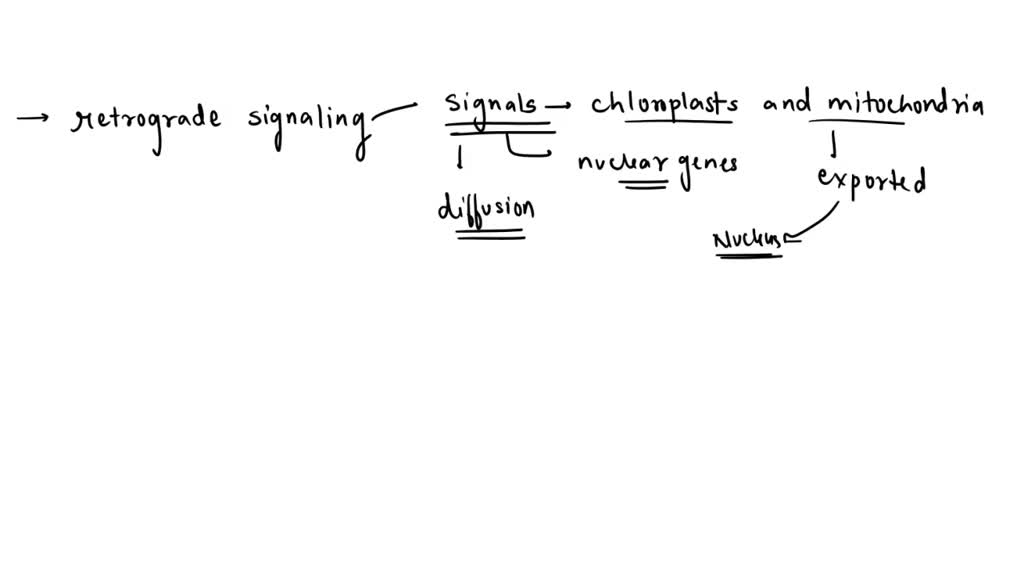 → retrograde signaling — signals → chloroplasts and mitochondria
nuclear genes
exported
diffusion
Nucleus